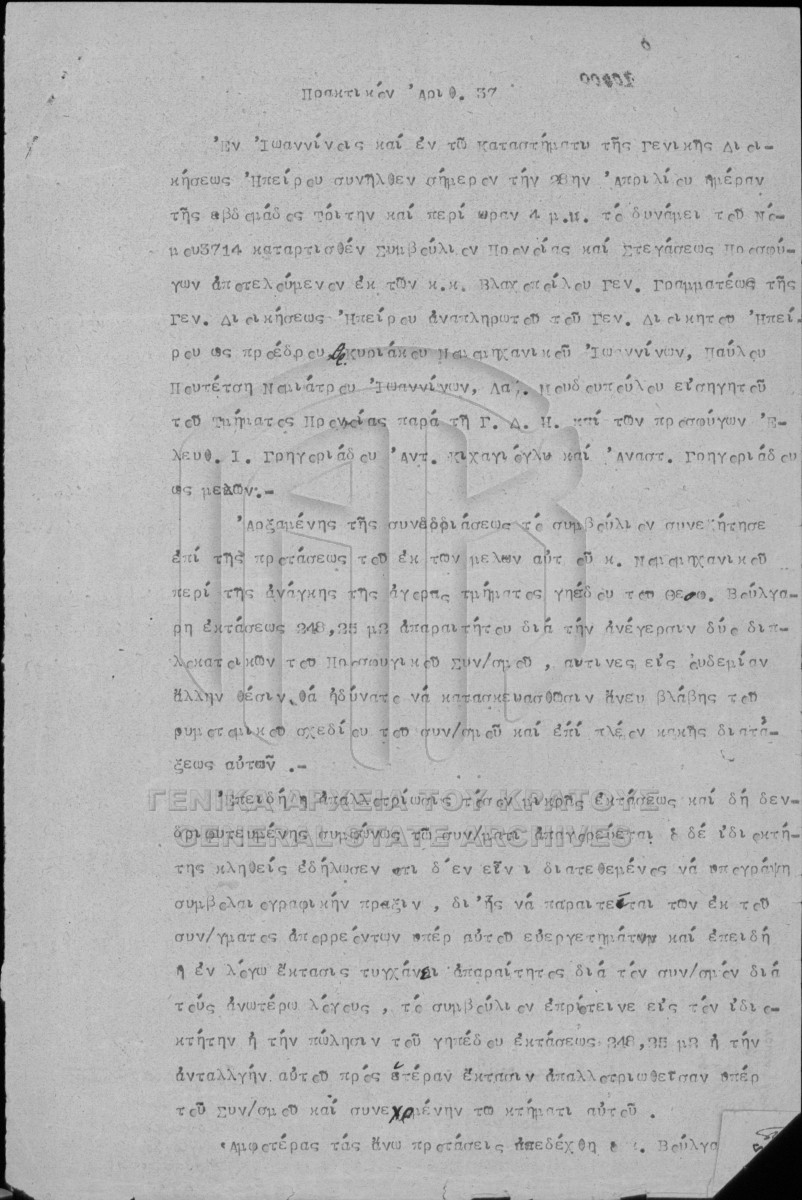 Πρακτικόν Ἀριθ. 37
Ἐν Ἰωαννίνοις καί ἐν τῶ καταστήματι τῆς Γενικῆς Διοι-
κήσεως Ἠπείρου συνῆλθεν σήμερον τήν 28ην Ἀπριλίου ἡμέραν
τῆς εβδομάδος Τρίτην καί περί ωραν 4 μ.μ. τό δυνάμει τοῦ Νό-
μου3714 καταρτισθέν Συμβούλιον Προνοίας καί Στεγάσεως Προσφύ-
γων ἀποτελούμενον ἐκ τῶν κ.κ. Βλαχοπούλου Γεν. Γραμματέως τῆς
Γεν. Διοικήσεως Ἠπείρου ἀναπληρωτοῦ τοῦ Γεν. Διοικητοῦ Ἠπεί-
ρου ως προέδρου Θρ. κυριάκου Νομομηχανικοῦ Ἰωαννίνων, Παύλου
Πουτέτση Νομιάτρου Ἰωαννίνων, Λαζ. Μουδουπούλου εἰσηγητοῦ
τοῦ Τμήματος Προνοίας παρά τῆ Γ. Δ. Η. καί των προσφύγων Ἐ-
λευθ. Ι. Γρηγοριάδου Ἀντ. Κιχαγιόγλυ καί Ἀναστ. Γρηγοριάδου
ως μελῶν.-
Ἀρξαμένης τῆς συνεδριάσεως τό συμβούλιον συνεζήτησε
ἐπί τῆς προτάσεως τοῦ ἐκ των μελων αὐτοῦ κ. Νομομηχανικοῦ
περί τῆς ἀνάγκης τῆς ἀγορας τμήματος γηέδου του Θεοφ. Βούλγα-
ρη ἐκτάσεως 248,25 μ2 ἀπαραιτήτου διά τήν ἀνέγερσιν δύο διπ-
λοκατοικιών του Προσφυγικοῦ Συν/σμοῦ , αιτινες εἰς οὐδεμίαν
ἄλλην θέσιν θά ἠδύνατο νά κατασκευασθῶσιν ἄνευ βλάβης τοῦ
ρυμοτομικοῦ σχεδίου του συν/σμοῦ καί ἐπί πλέον κακῆς διατά-
ξεως αὐτῶν .-
Ἐπειδή η ἀπαλλοτρίωσις τόσον μικρᾶς ἐκτάσεως καί δή δεν-
δροφυτευμένης συμφώνως τῶ συν/ματι ἀπαγορεύεται ὁ δέ ἰδιοκτή-
της κληθείς ἐδήλωσεν οτι δἐν εἶνι διατεθεμένος νά υπογράψη
συμβολαιογραφικήν πραξιν , δι'ῆς νά παραιτεῖται των ἐκ τοῦ
συν/γματος ἀπορρεόντων υπέρ αὐτοῦ εὐεργετημάτων καί ἐπειδή
ἡ ἐν λόγω ἔκτασις τυγχάνει ἀπαραίτητος διά τόν συν/σμόν διά
τούς ἀνωτέρω λόγους , τό συμβούλιον ἐπρότεινε εἰς τόν ἰδιο-
κτήτην ἡ τήν πώλησιν τοῦ γηπέδου ἐκτάσεως 248,25 μ2 ἡ τήν
ἀνταλλγήν αὐτοῦ πρός ἑτέραν ἔκτασιν ἀπαλλοτριωθεῖσαν ὑπέρ
τοῦ Συν/σμοῦ καί συνεχομένην τω κτήματι αὐτοῦ .
Ἀμφοτέρας τάς ἄνω προτάσεις ἀπεδέχθη ὁ κ. Βούλγα
ΓΕΝΙΚΑ ΑΡΧΕΙΑ ΤΟΥ ΚΡΑΤΟΥΣ
GENERAL STATE ARCHIVES